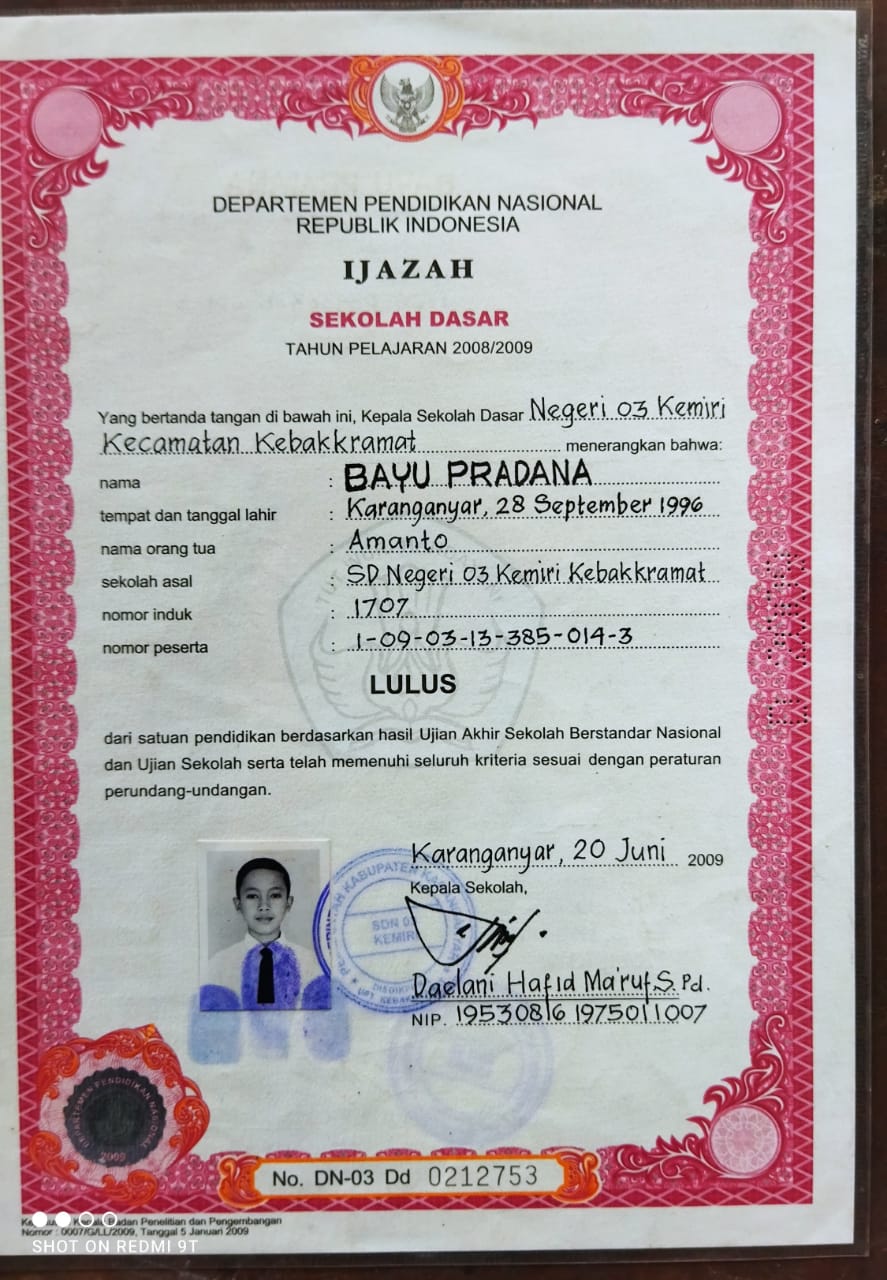 DEPARTEMEN PENDIDIKAN NASIONAL
REPUBLIK INDONESIA
IJAZAH
SEKOLAH DASAR
TAHUN PELAJARAN 2008/2009
Yang bertanda tangan di bawah ini, Kepala Sekolah Dasar Negeri 03 Kemiri
Kecamatan Kebakkramat menerangkan bahwa:
nama : BAYU PRADANA
tempat dan tanggal lahir : Karanganyar, 28 September 1996
nama orang tua : Amanto
sekolah asal : SD Negeri 03 Kemiri Kebakkramat
nomor induk : 1707
nomor peserta : 1-09-03-13-385-014-3
LULUS
dari satuan pendidikan berdasarkan hasil Ujian Akhir Sekolah Berstandar Nasional
dan Ujian Sekolah serta telah memenuhi seluruh kriteria sesuai dengan peraturan
perundang-undangan.
Karanganyar, 20 Juni 2009
Kepala Sekolah,
KABUPATEN
SDN 03
KEMIRI
Daelani Hafid Ma'ruf, S. Pd.
NIP. 19530816 197501 1007
DEPARTEMEN PENDIDIKAN NASIONAL
2009
No. DN-03 Dd 0212753
Kepala Badan Penelitian dan Pengembangan
Nomor : 0007/G/LL/2009, Tanggal 5 Januari 2009
SHOT ON REDMI 9T